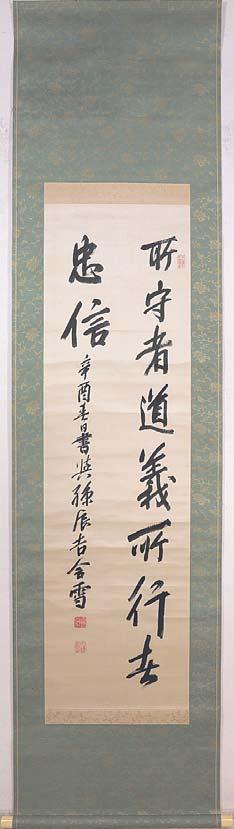 所守者道義所行者
忠信
辛酉春日書與孫辰吉合雪